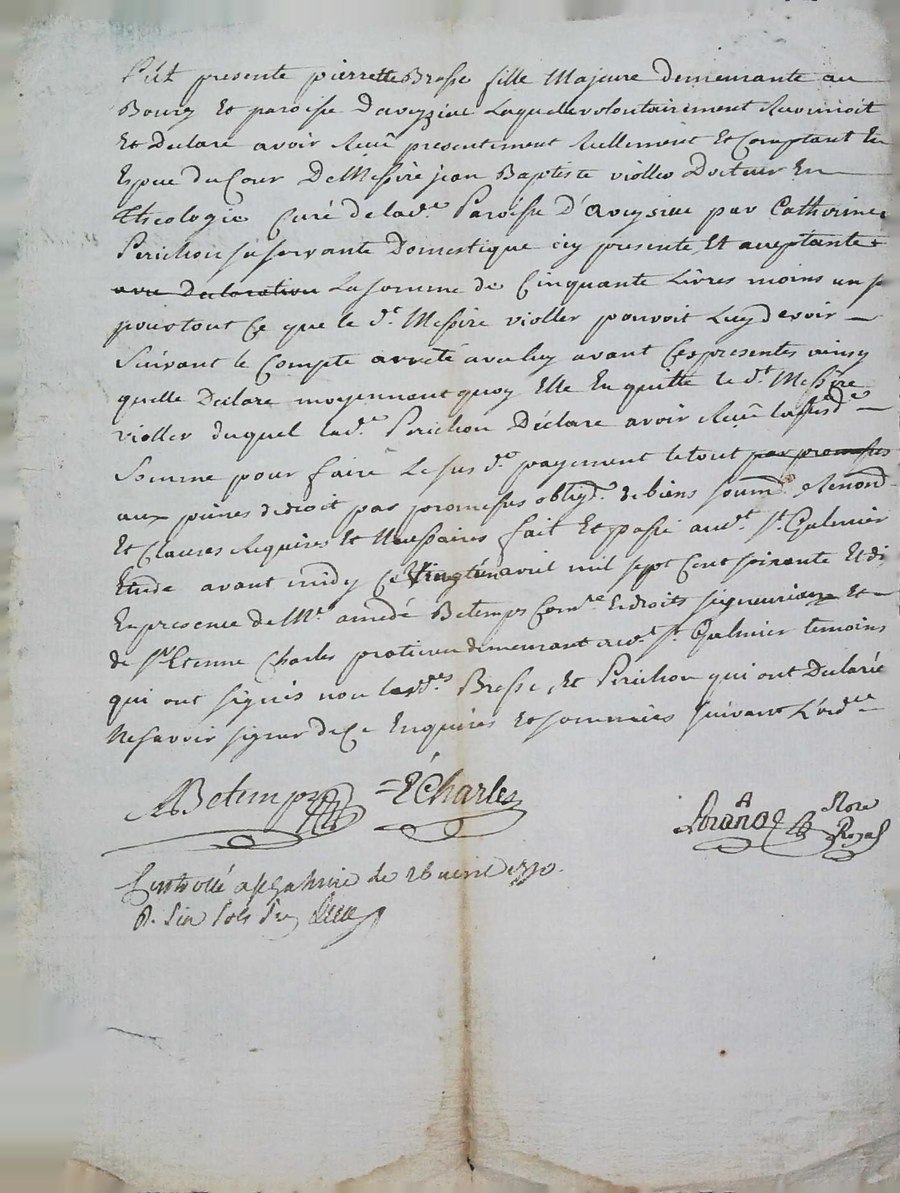 Fut presente pierrette Bresse fille Majeure demeurante au
Bourg Et paroisse d'aveyzieu Laquelle volontairement Reconnoit
Et Declare avoir Receu presentement Reellement Et Comptant En
Espece du Cour De Messire jean Baptiste violler Docteur En
theologie Curé de lad.e Paroisse D'aveysieu par Catherine
Perichon sa servante Domestique icy presente Et aceptante
avec Declaration La somme de Cinquante Livres moins un s
pour tout Ce que le d.t Messire violler pouvoit Luy devoir
Suivant le Compte arreté avec luy avant Ces presentes ainsy
quelle Declare moyennant quoy Elle En quitte le d.t Messire
violler duquel lad.e Perichon Déclare avoir Receu la susd.e
Somme pour faire Le sus d.t payement le tout par promesses
aux peines de droit par promesses oblig.s de biens soum.s Renond.
Et Clauses Requises Et Necessaires fait Et passé aud.t St Galmier
Etude avant midy Ce Vingt un avril mil sept Cent soixante Et dix
En presence de Mr. amedé Betemps Com.re Es droits seigneuriaux Et
de sr. Etienne Charles praticien demeurant aud.t St. Galmier temoins
qui ont signés non lesd.es Bresse, Et Perichon qui ont Declaré
Ne savoir signer de Ce Enquises Et sommées suivant L'ord.ce
ABetemps E Charles
Not.re
Royal
Controllé a St Galmier le 26 avril 1770.
R. Six sols six